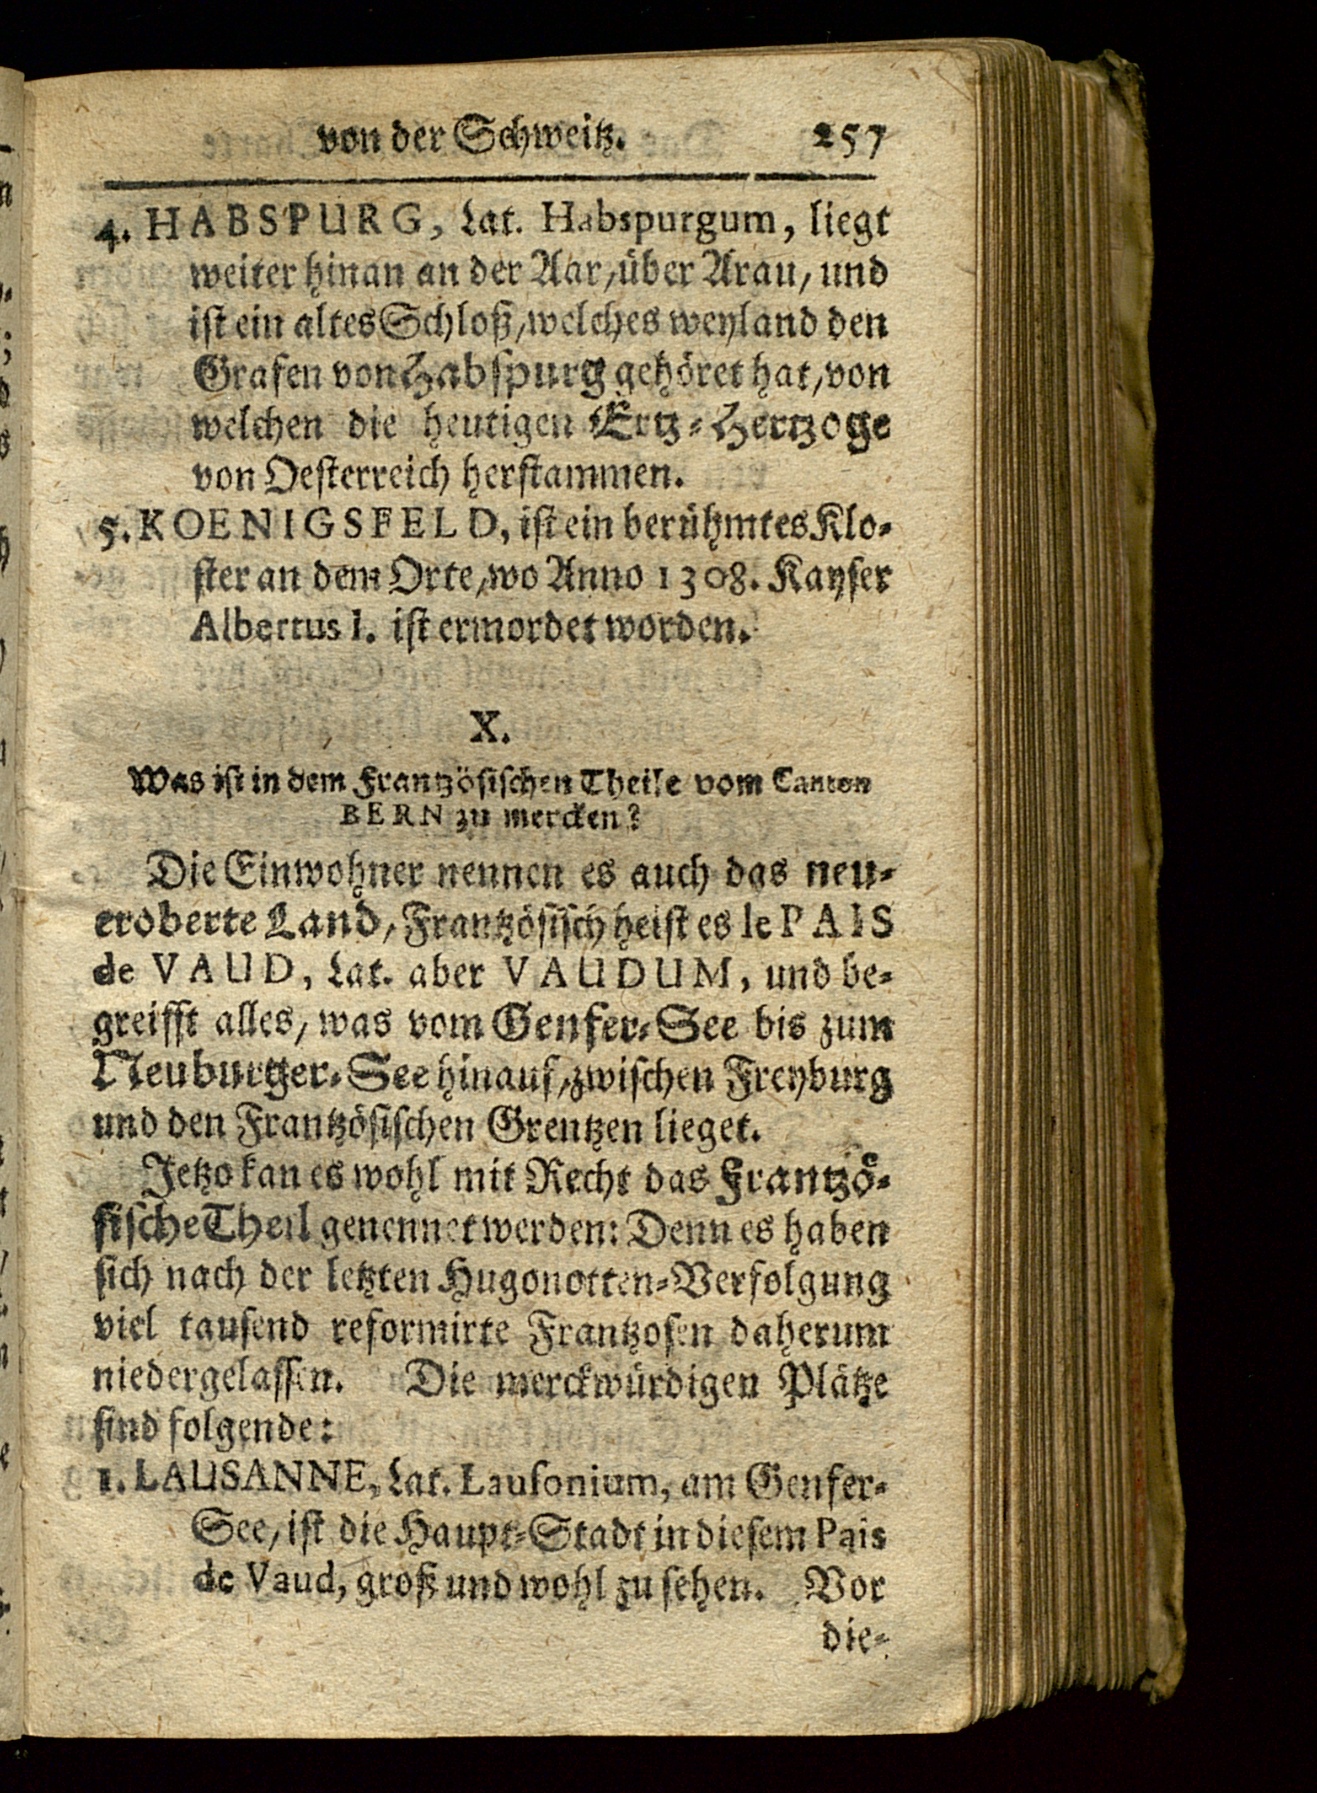 von der Schweitz. 257
4. HABSPURG, Lat. Habspurgum, liegt
weiter hinan an der Aar, über Arau, und
ist ein altes Schloß, welches weyland den
Grafen von Habspurg gehöret hat, von
welchen die heutigen Ertz-Hertzoge
von Oesterreich herstammen.
5. KOENIGSFELD, ist ein berühmtes Klo-
ster an dem Orte, wo Anno 1308. Kayser
Albertus I. ist ermordet worden.
X.
Was ist in dem Frantzösischen Theile vom Canton
BERN zu mercken?
Die Einwohner nennen es auch das neu-
eroberte Land, Frantzösisch heist es le PAIS
de VAUD, Lat. aber VAUDUM, und be-
greifft alles, was vom Genfer-See bis zum
Neuburger-See hinauf, zwischen Freyburg
und den Frantzösischen Grentzen lieget.
Jetzo kan es wohl mit Recht das Frantzö-
sische Theil genennet werden: Denn es haben
sich nach der letzten Hugonotten-Verfolgung
viel tausend reformirte Frantzosen daherum
niedergelassen. Die merckwürdigen Plätze
sind folgende:
1. LAUSANNE, Lat. Lausonium, am Genfer-
See, ist die Haupt-Stadt in diesem Pais
de Vaud, groß und wohl zu sehen. Vor
die-